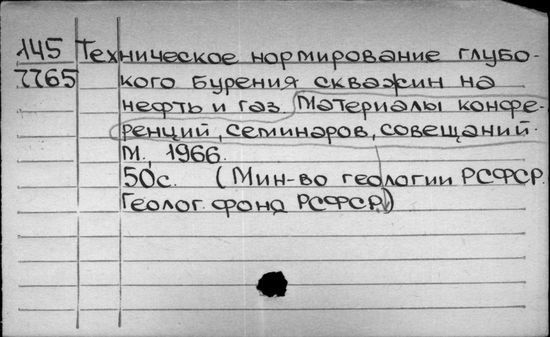 145 Техническое нормирование глубо-
7765 кого бурения скважин на
нефть и газ. Материалы конфе-
ренций, семинаров, совещаний.
М., 1966.
50с. (Мин-во геологии РСФСР.
Геолог. фонд РСФСР)